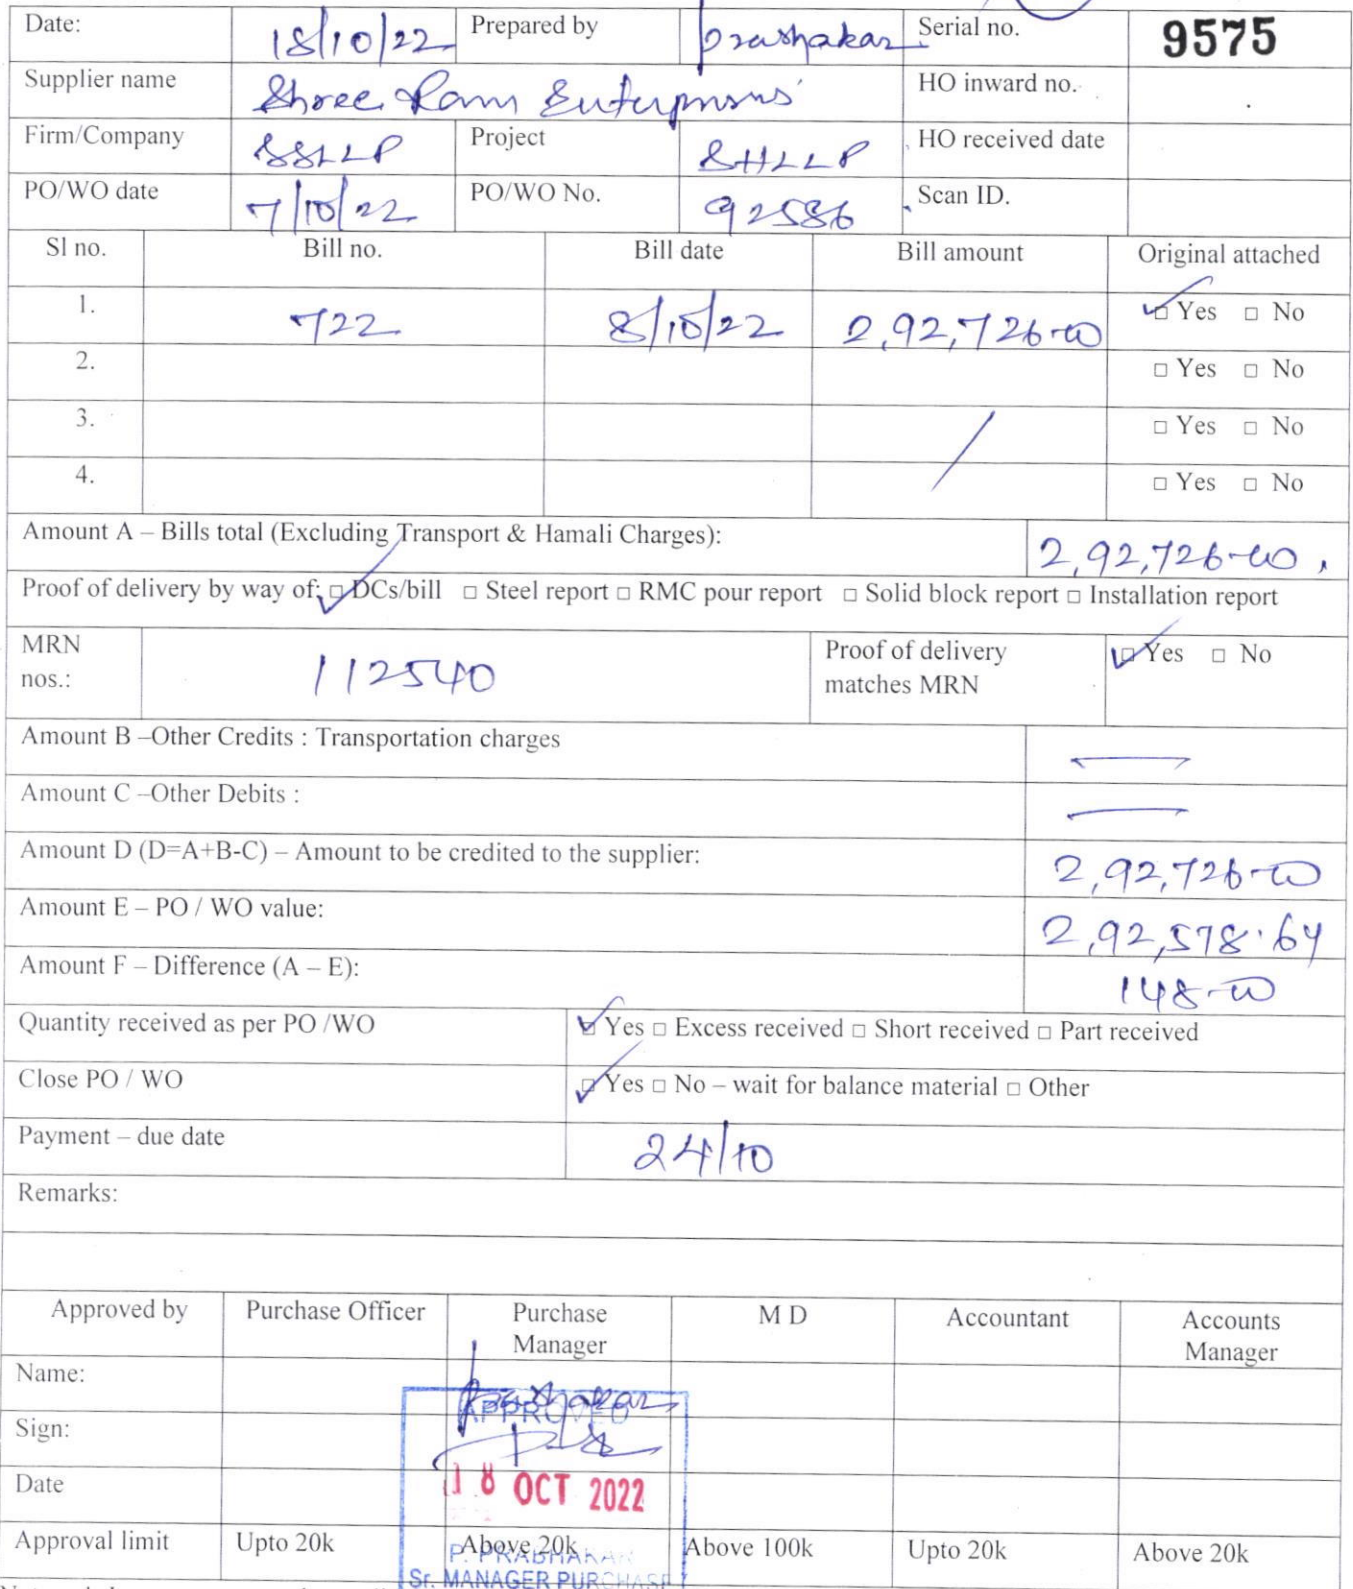 Date: 18/10/22 Prepared by prabhakar Serial no. 9575
Supplier name Shree Ram Enterprises HO inward no.
Firm/Company SSLLP Project SHLLP HO received date
PO/WO date 7/10/22 PO/WO No. 92586 Scan ID.
Sl no. Bill no. Bill date Bill amount Original attached
1. 722 8/10/22 2,92,726-00 ☑ Yes □ No
2. □ Yes □ No
3. □ Yes □ No
4. □ Yes □ No
Amount A – Bills total (Excluding Transport & Hamali Charges): 2,92,726-00
Proof of delivery by way of: ☑ DCs/bill □ Steel report □ RMC pour report □ Solid block report □ Installation report
MRN nos.: 112540 Proof of delivery matches MRN ☑ Yes □ No
Amount B –Other Credits : Transportation charges —
Amount C –Other Debits : —
Amount D (D=A+B-C) – Amount to be credited to the supplier: 2,92,726-00
Amount E – PO / WO value: 2,92,578.64
Amount F – Difference (A – E): 148-00
Quantity received as per PO /WO ☑ Yes □ Excess received □ Short received □ Part received
Close PO / WO ☑ Yes □ No – wait for balance material □ Other
Payment – due date 24/10
Remarks:
Approved by Purchase Officer Purchase Manager M D Accountant Accounts Manager
Name: Prabhakar
APPROVED
Sign:
Date 18 OCT 2022
Approval limit Upto 20k Above 20k Above 100k Upto 20k Above 20k
P. PRABHAKAR
Sr. MANAGER PURCHASE